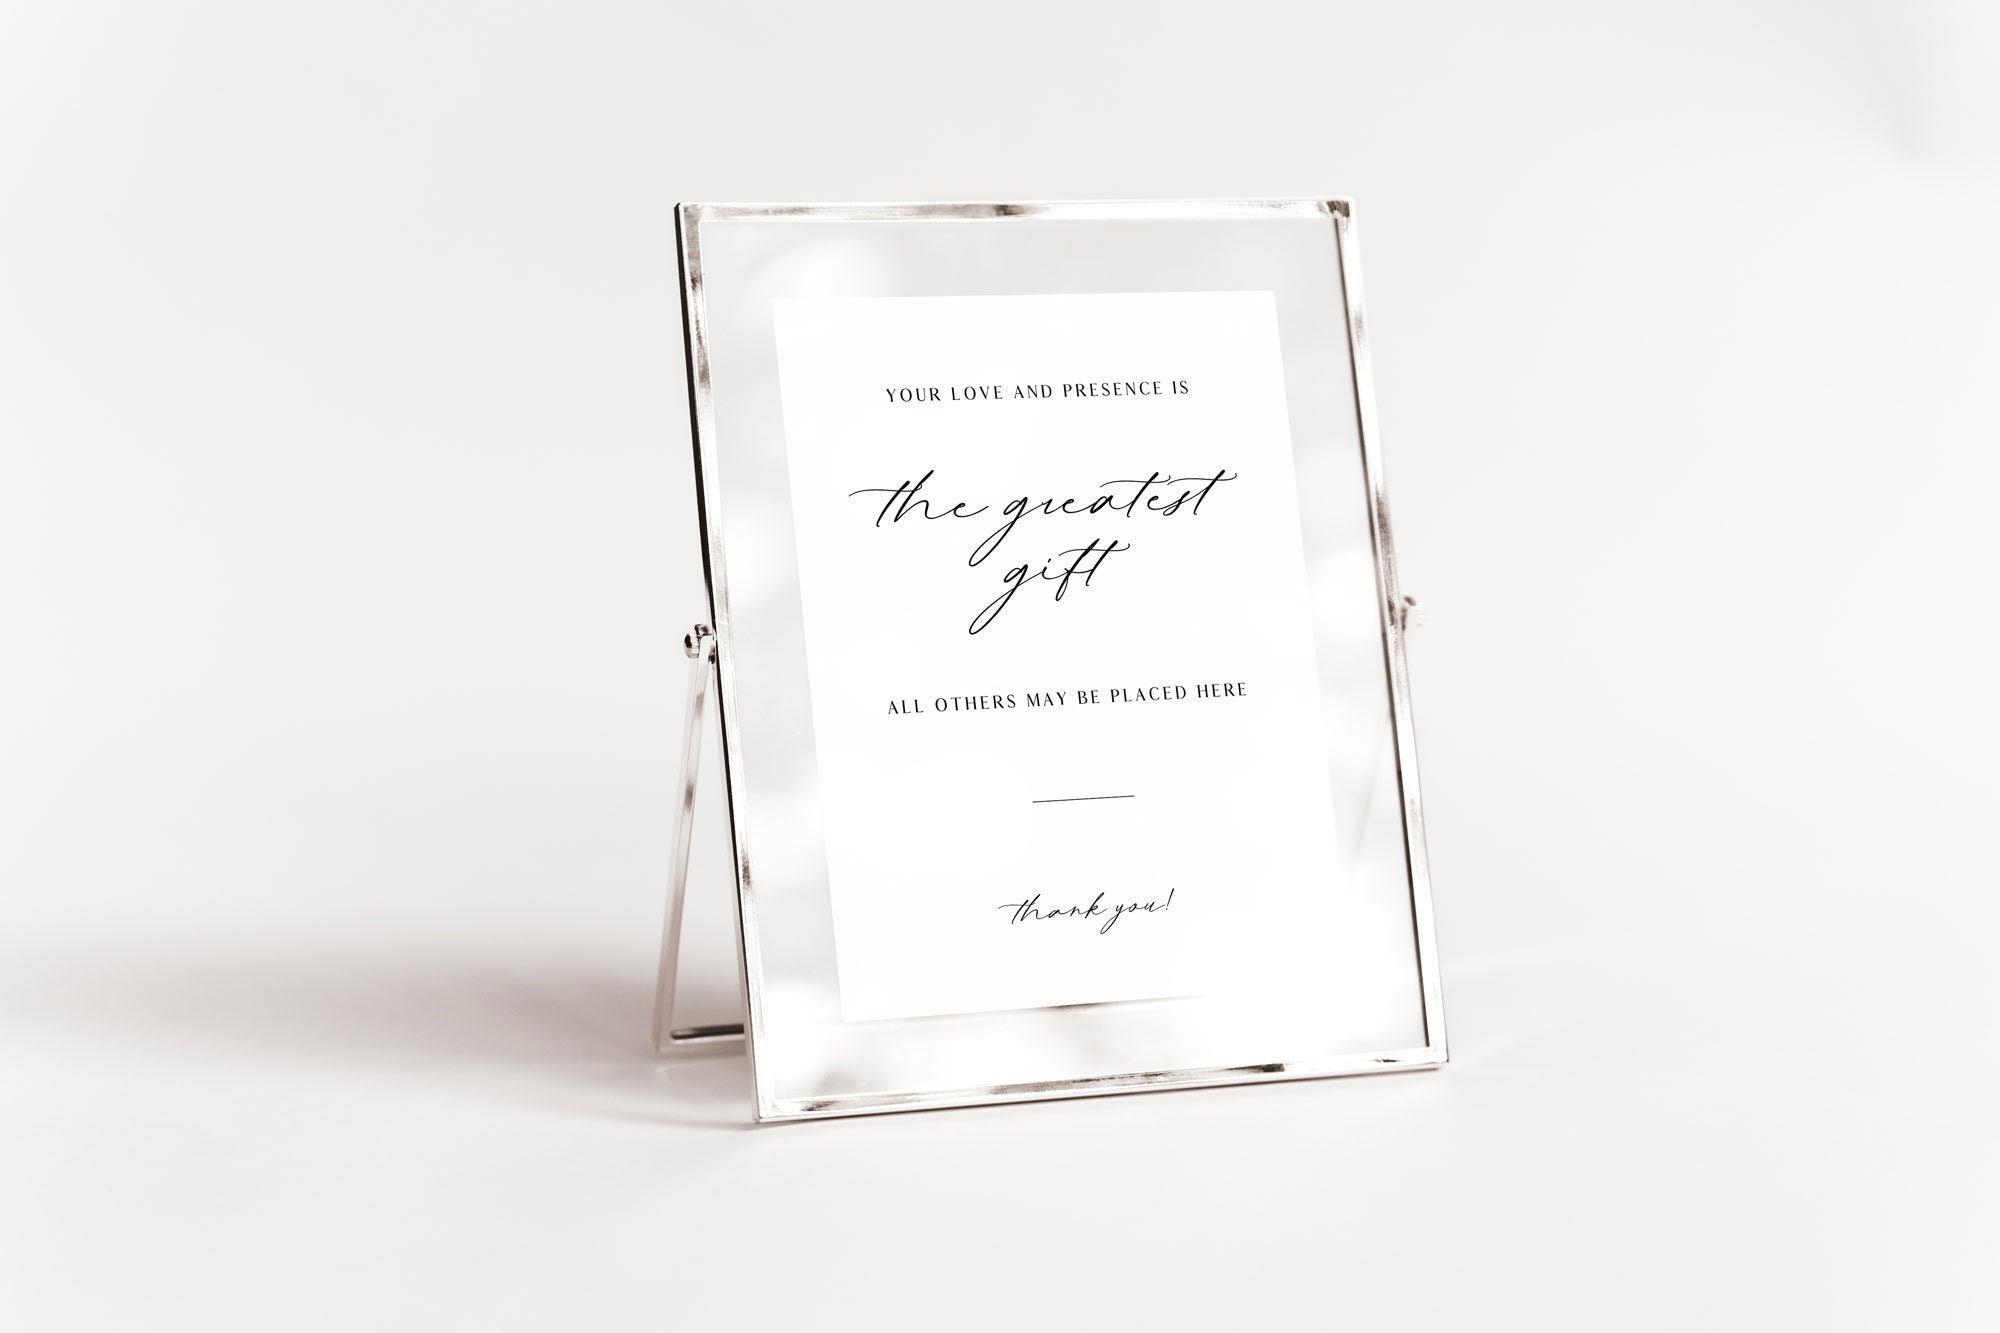 YOUR LOVE AND PRESENCE IS
the greatest
gift
ALL OTHERS MAY BE PLACED HERE
thank you!